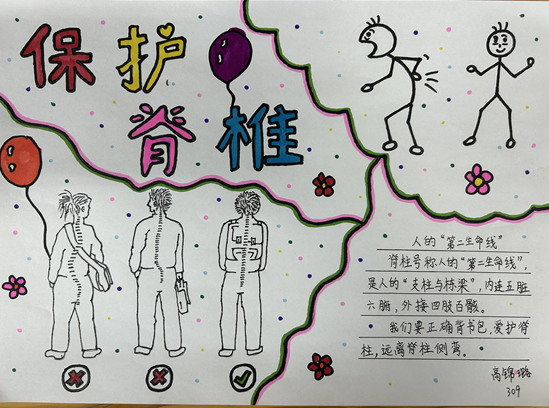 保护
脊椎
人的“第二生命线”
脊柱号称人的“第二生命线”，
是人的“支柱与桥梁”，内连五脏
六腑，外接四肢百骸。
我们要正确背书包，爱护脊
柱，远离脊柱侧弯。
高锦璐
309